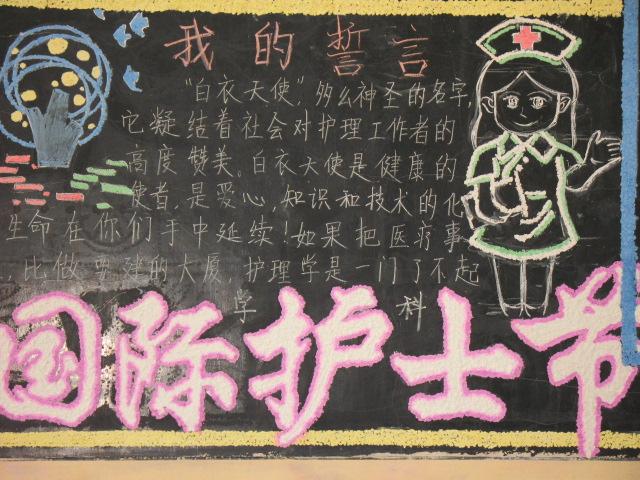 我的誓言
"白衣天使",多么神圣的名字,
它凝结着社会对护理工作者的
高度赞美。白衣天使是健康的
使者,是爱心,知识和技术的化
生命在你们手中延续!如果把医疗事
比做 建的大厦 护理学是一门了不起
学 科
国际护士节